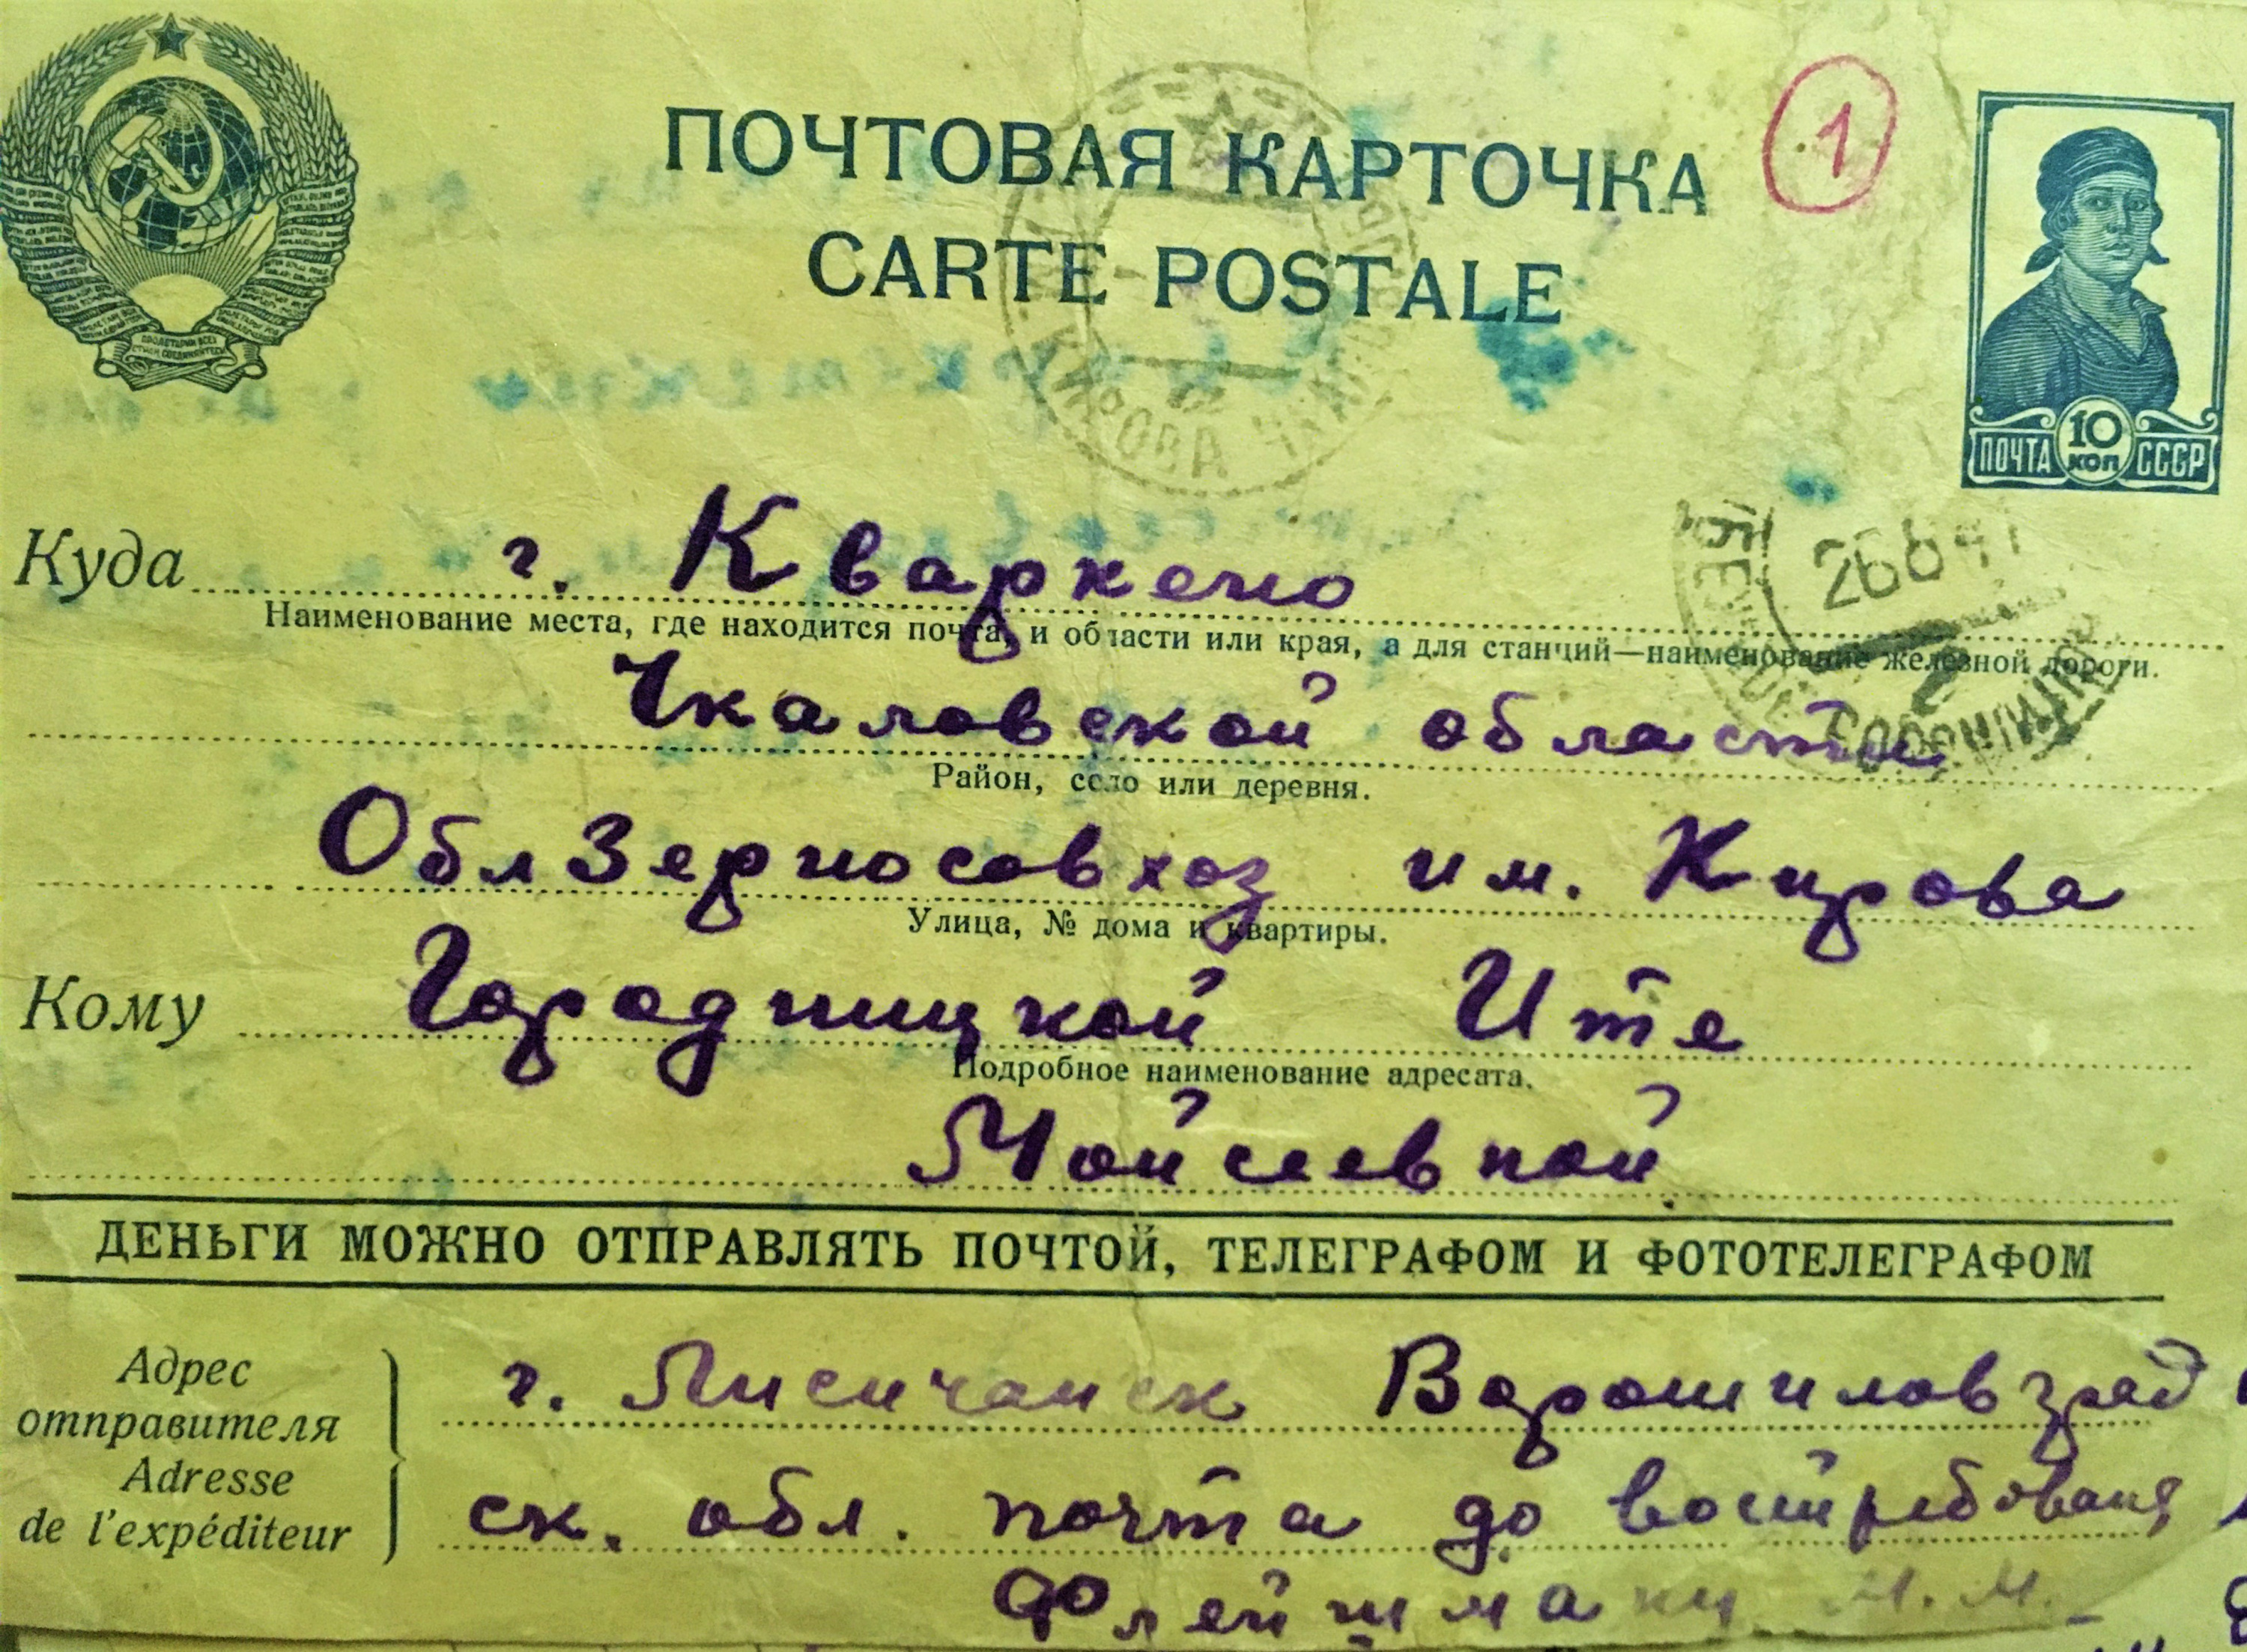 ПОЧТОВАЯ КАРТОЧКА
1
CARTE POSTALE
ПОЧТА 10 КОП СССР
КИРОВА
26 6 41
Куда г. Кваркено
Наименование места, где находится почта, и области или края, а для станций—наименование железной дороги.
Чкаловской области
Район, село или деревня.
ОблЗерносовхоз им. Кирова
Улица, № дома и квартиры.
Кому Городницкой Ите
Подробное наименование адресата.
Мойсеевной
ДЕНЬГИ МОЖНО ОТПРАВЛЯТЬ ПОЧТОЙ, ТЕЛЕГРАФОМ И ФОТОТЕЛЕГРАФОМ
Адрес отправителя
Adresse de l'expéditeur
г. Лисичанск Ворошиловград
ск. обл. почта до востребованя
Флейшман М.